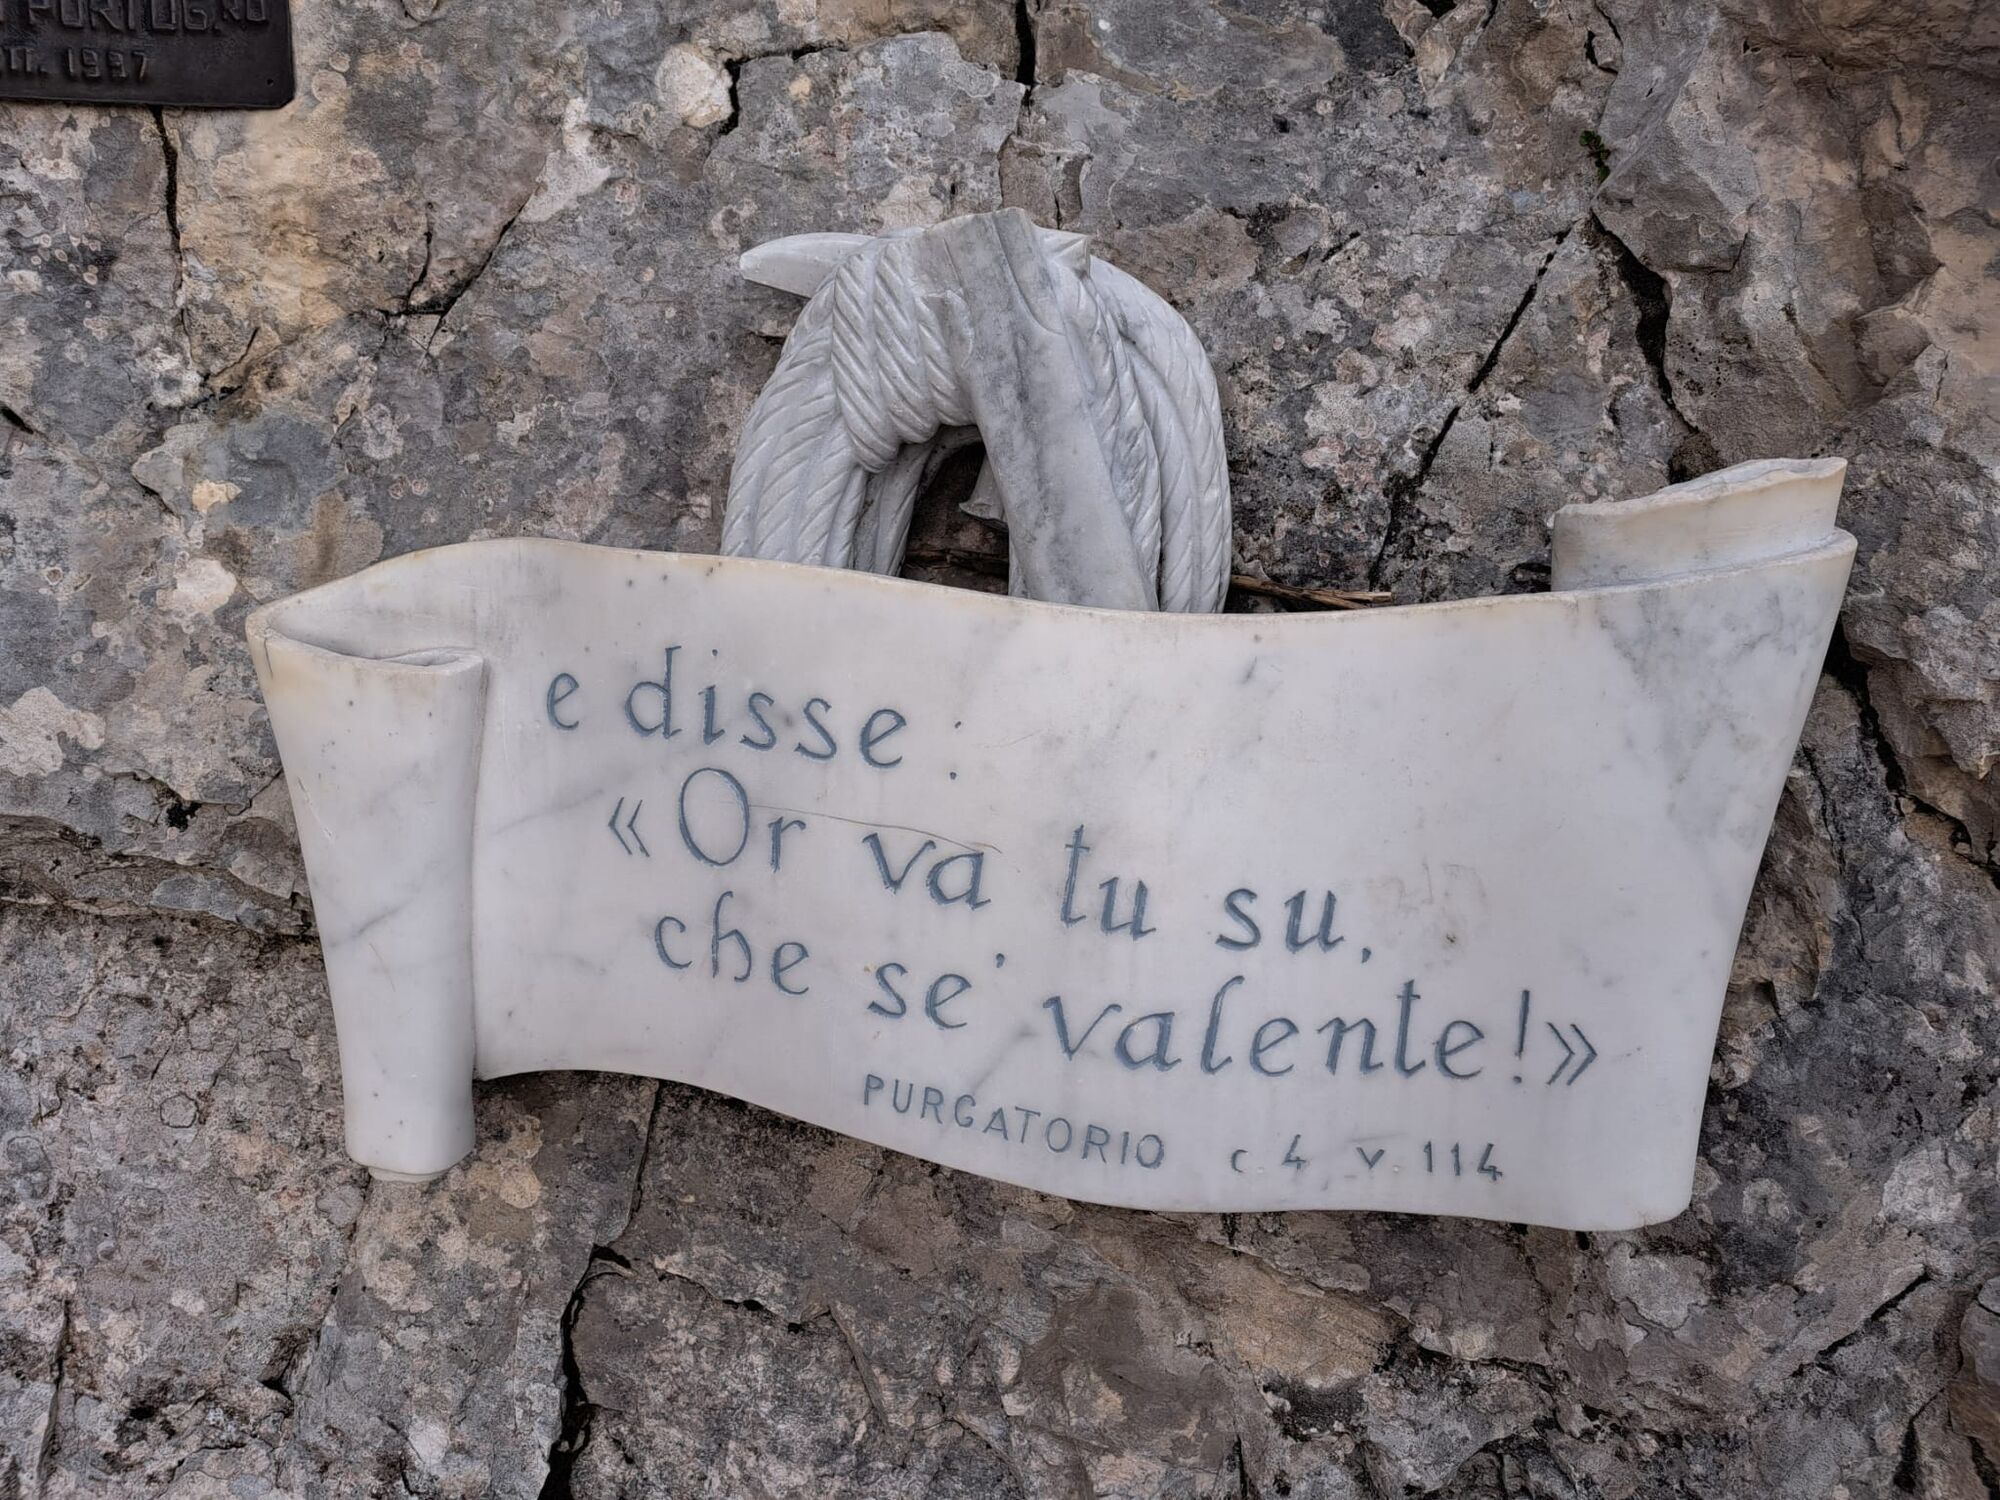 PORTOG.RO
1997
e disse:
«Or va tu su,
che se' valente!»
PURGATORIO c. 4 v. 114